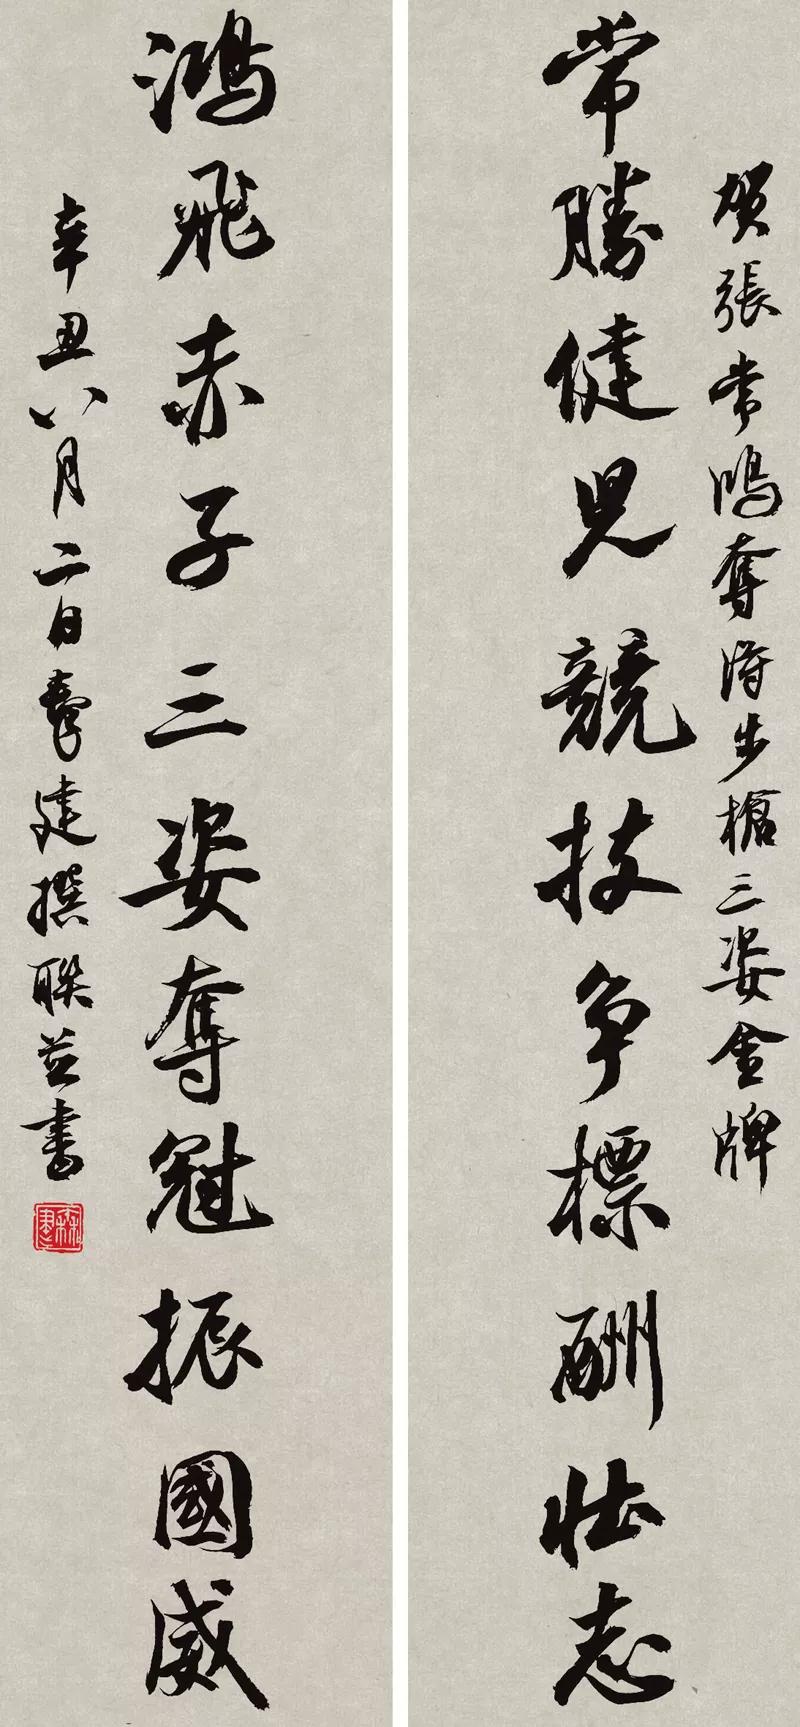 贺張常鴻奪得步槍三姿金牌
常勝健兒競技争標酬壮志
鴻飛赤子三姿奪冠振國威
辛丑八月二日建撰聯並書